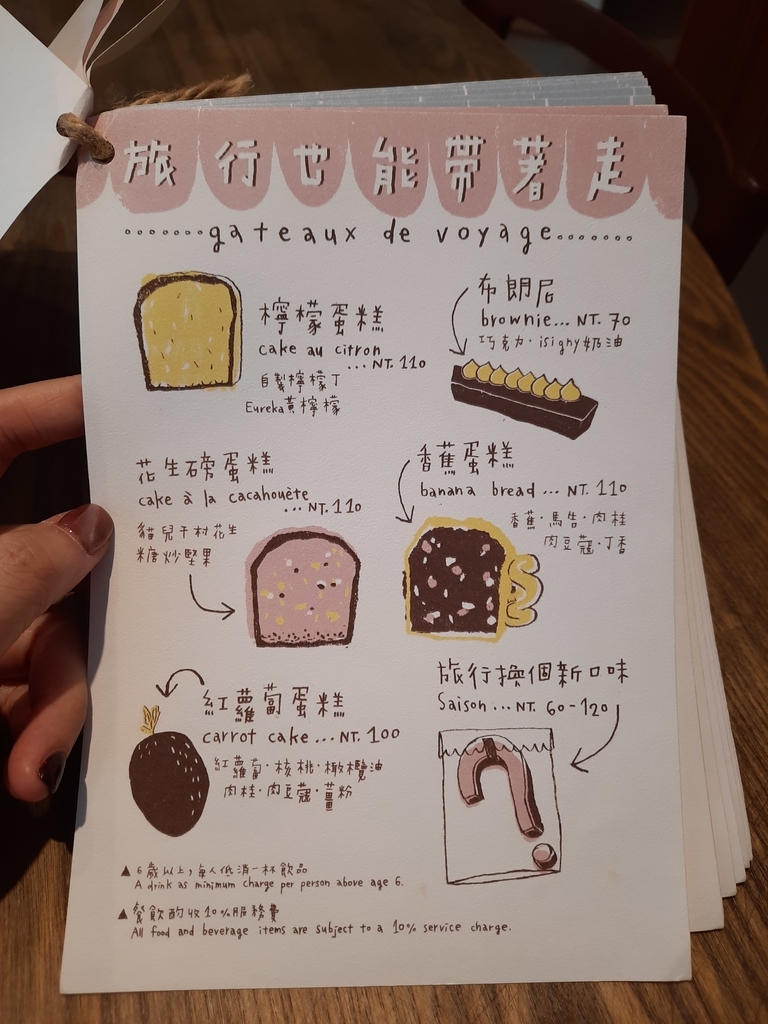 旅行也能帶著走
·······gateaux de voyage·······
檸檬蛋糕
cake au citron
... NT. 110
自製檸檬丁
Eureka黃檸檬
布朗尼
brownie... NT. 70
巧克力·isigny奶油
花生磅蛋糕
cake à la cacahouète
... NT. 110
貓兒干村花生
糖炒堅果
香蕉蛋糕
banana bread ... NT. 110
香蕉·馬告·肉桂
肉豆蔻·丁香
紅蘿蔔蛋糕
carrot cake ... NT. 100
紅蘿蔔·核桃·橄欖油
肉桂·肉豆蔻·薑粉
旅行換個新口味
Saison ... NT. 60-120
▲ 6歲以上，每人低消一杯飲品
A drink as minimum charge per person above age 6.
▲ 餐飲酌收10%服務費
All food and beverage items are subject to a 10% service charge.